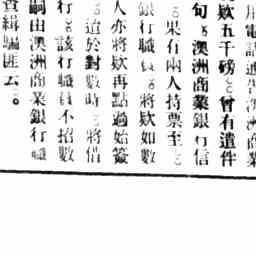 用電話通告澳洲商業
欵五千磅。曾有遣件
旬。澳洲商業銀行信
。果有兩人持票至。
銀行職員。將欵如數
人亦將欵再點過始簽
。迨於對數時。將借
行。該行職員不招數
嗣由澳洲商業銀行職
查緝騙匪云。